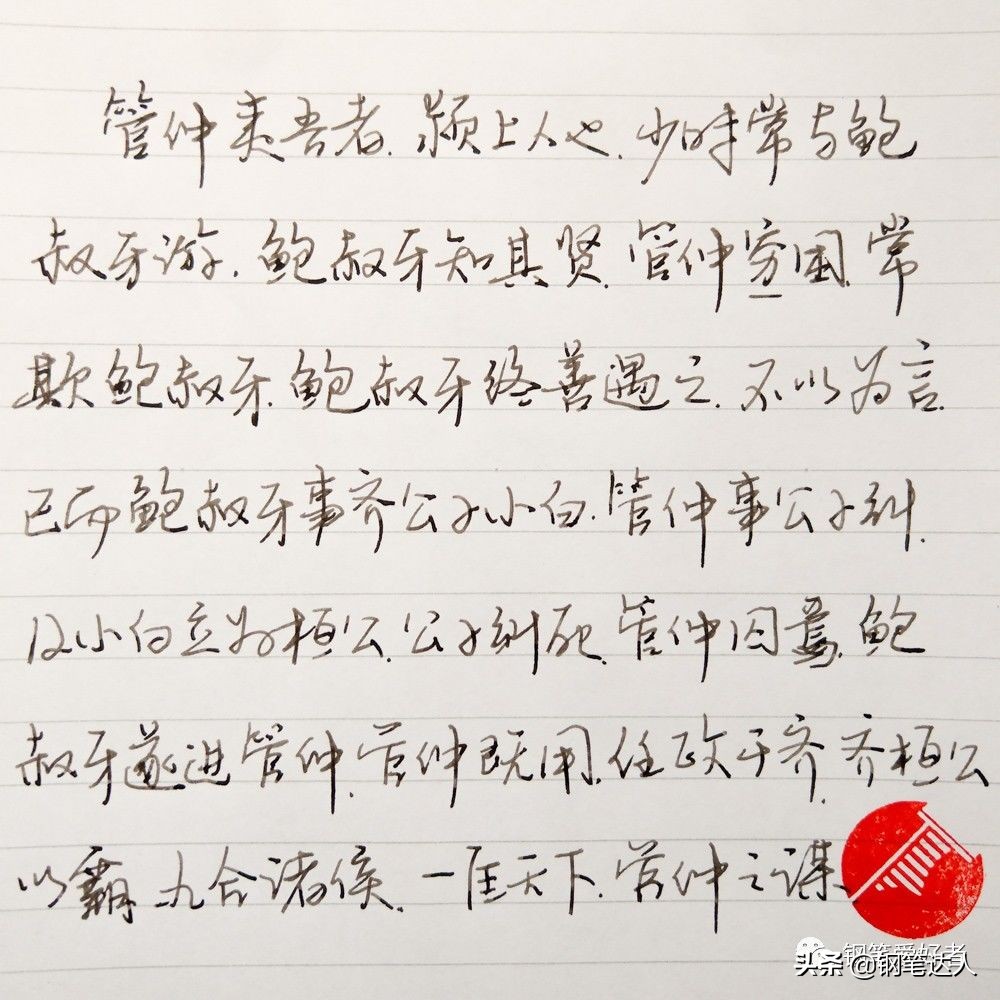 管仲夷吾者.颍上人也.少时常与鲍
叔牙游.鲍叔牙知其贤.管仲穷困.常
欺鲍叔牙.鲍叔牙终善遇之.不以为言.
已而鲍叔牙事齐公子小白.管仲事公子纠.
及小白立为桓公.公子纠死.管仲囚焉.鲍
叔牙遂进管仲.管仲既用.任政于齐.齐桓公
以霸.九合诸侯.一匡天下.管仲之谋
钢笔爱好者
头条@钢笔达人